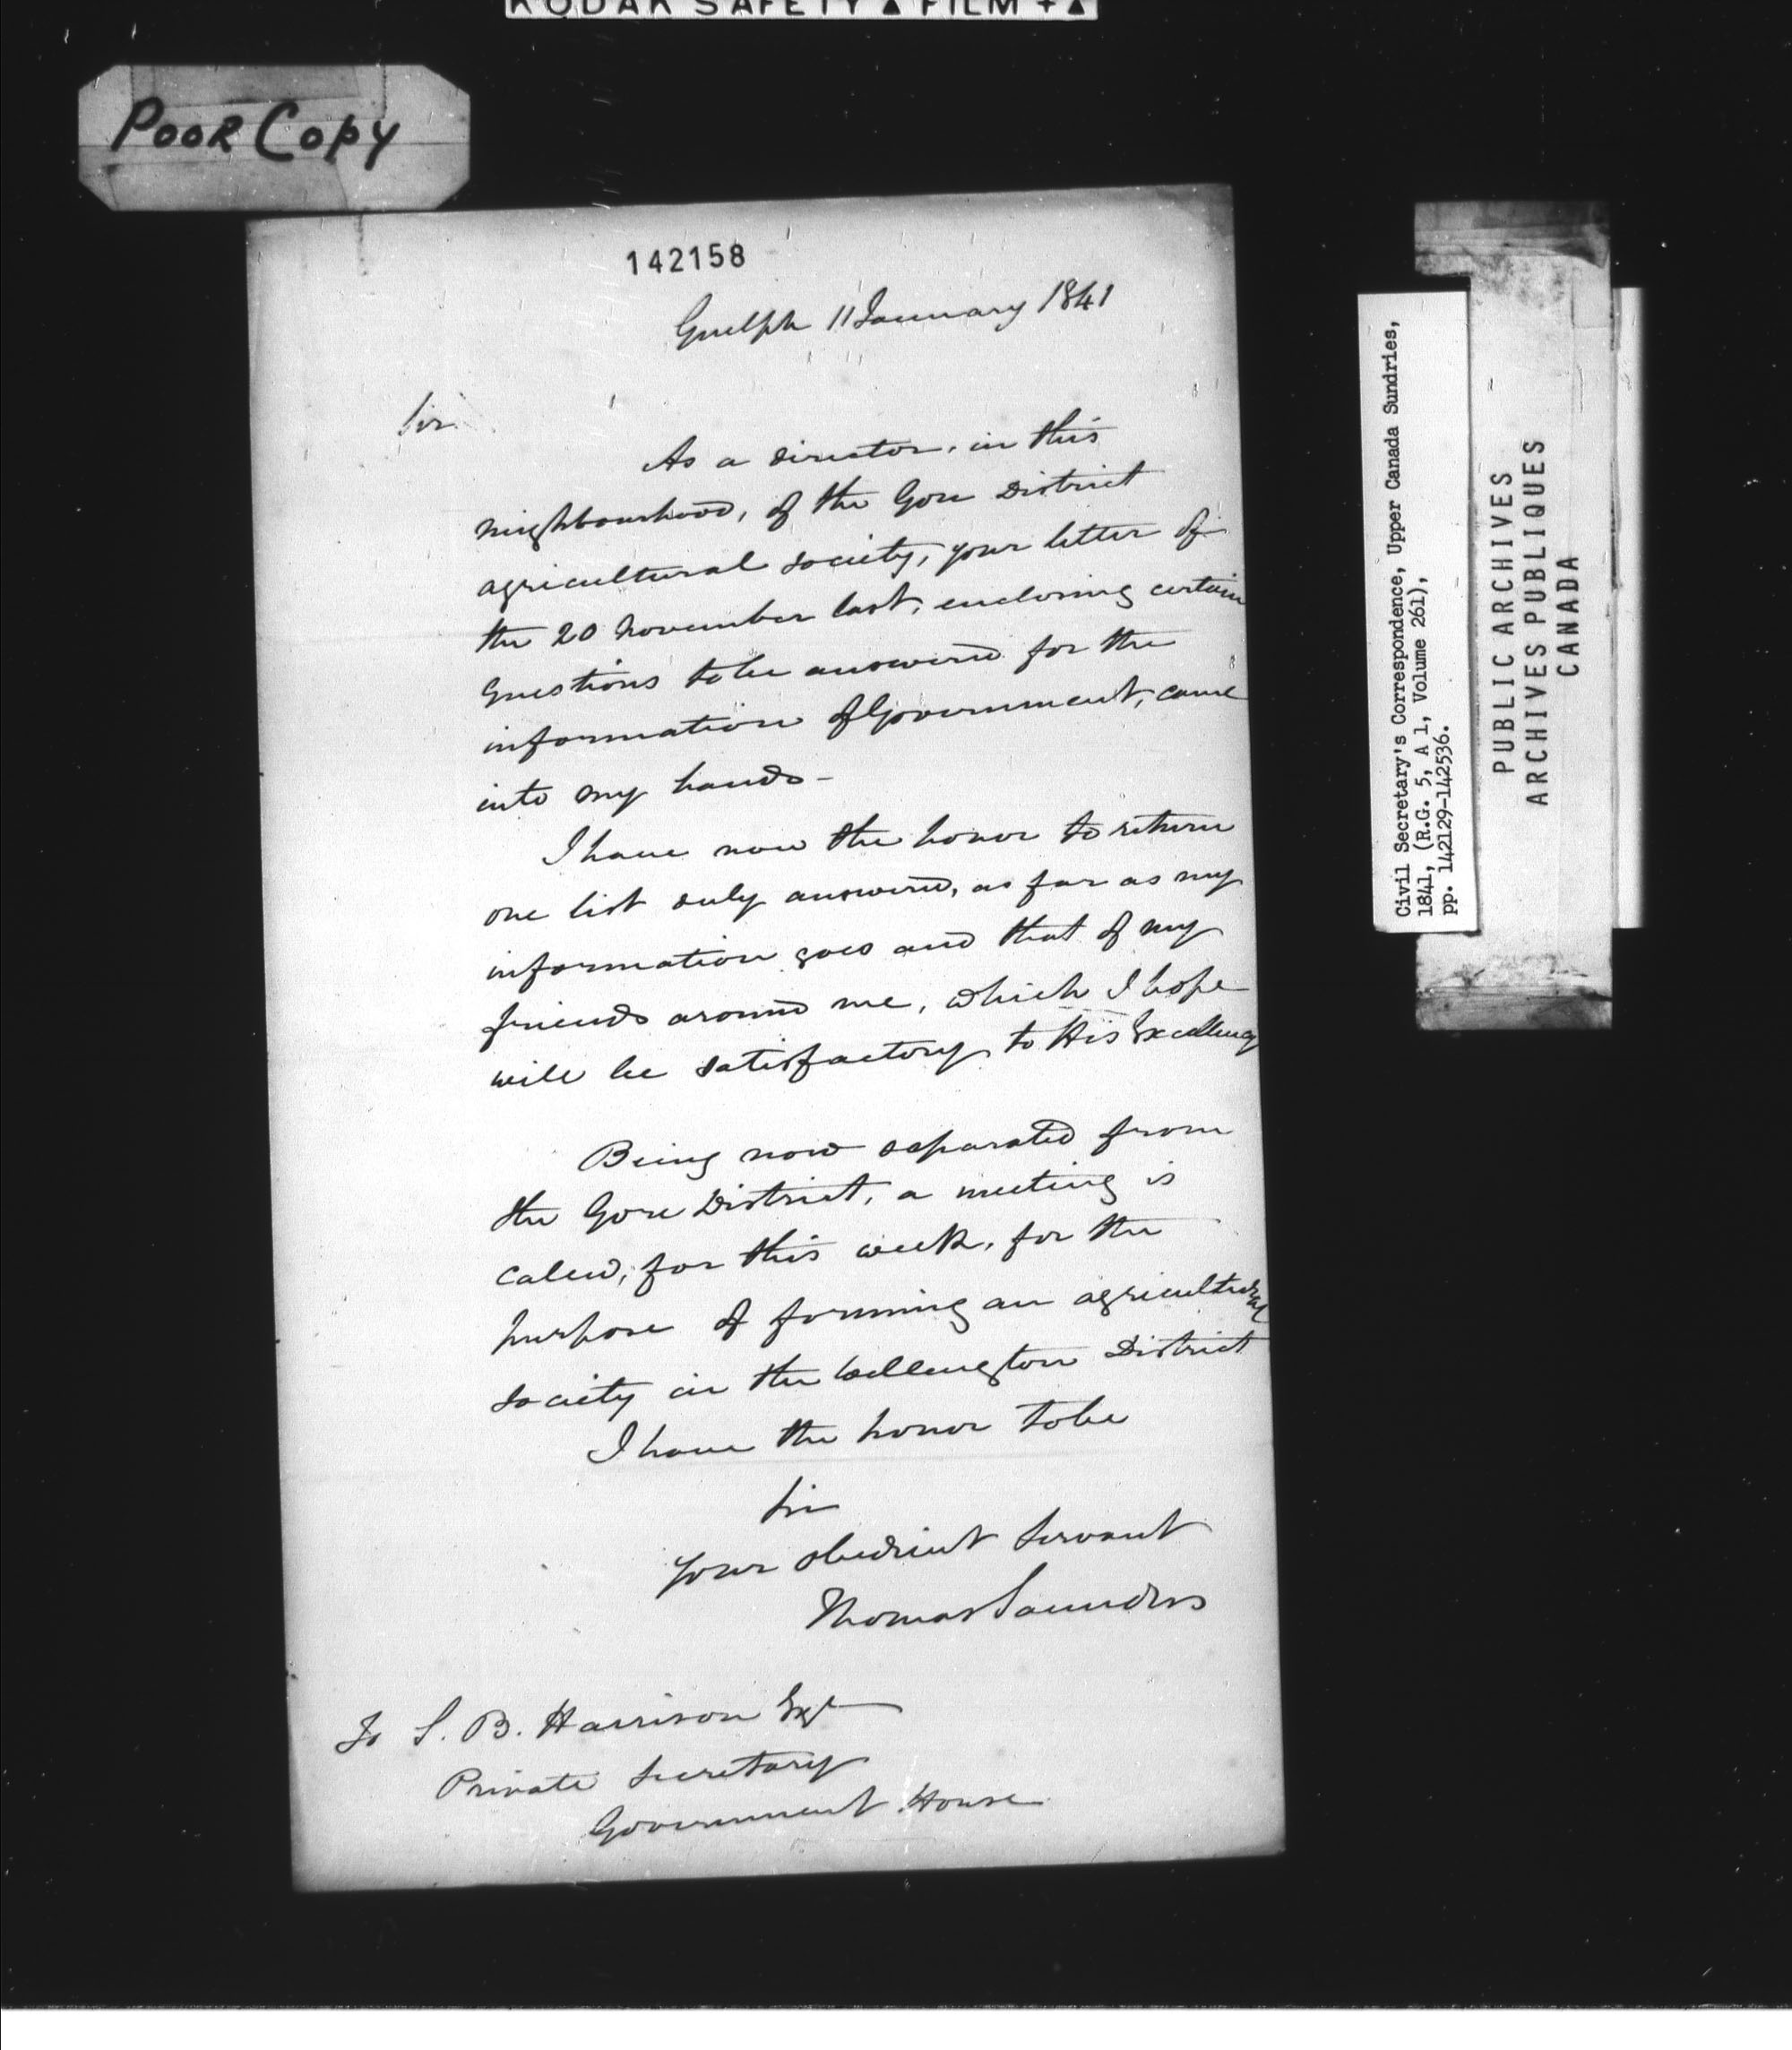 KODAK SAFETY ▲ FILM + ▲
POOR COPY
142158
Guelph 11 January 1841
Sir
As a director, in this
neighbourhood, of the Gore District
agricultural society, your letter of
the 20 November last, enclosing certain
Questions to be answered for the
information of Government, came
into my hands -
I have now the honor to return
one list duly answered, as far as my
information goes and that of my
friends around me, which I hope
will be satisfactory to His Excellency
Being now separated from
the Gore District, a meeting is
called, for this week, for the
purpose of forming an agricultural
society in the Wellington District
I have the honor to be
Sir
your obedient Servant
Thomas Saunders
To S. B. Harrison Esqr
Private Secretary
Government House
Civil Secretary's Correspondence, Upper Canada Sundries,
1841, (R.G. 5, A 1, Volume 261),
pp. 142129-142536.
PUBLIC ARCHIVES
ARCHIVES PUBLIQUES
CANADA